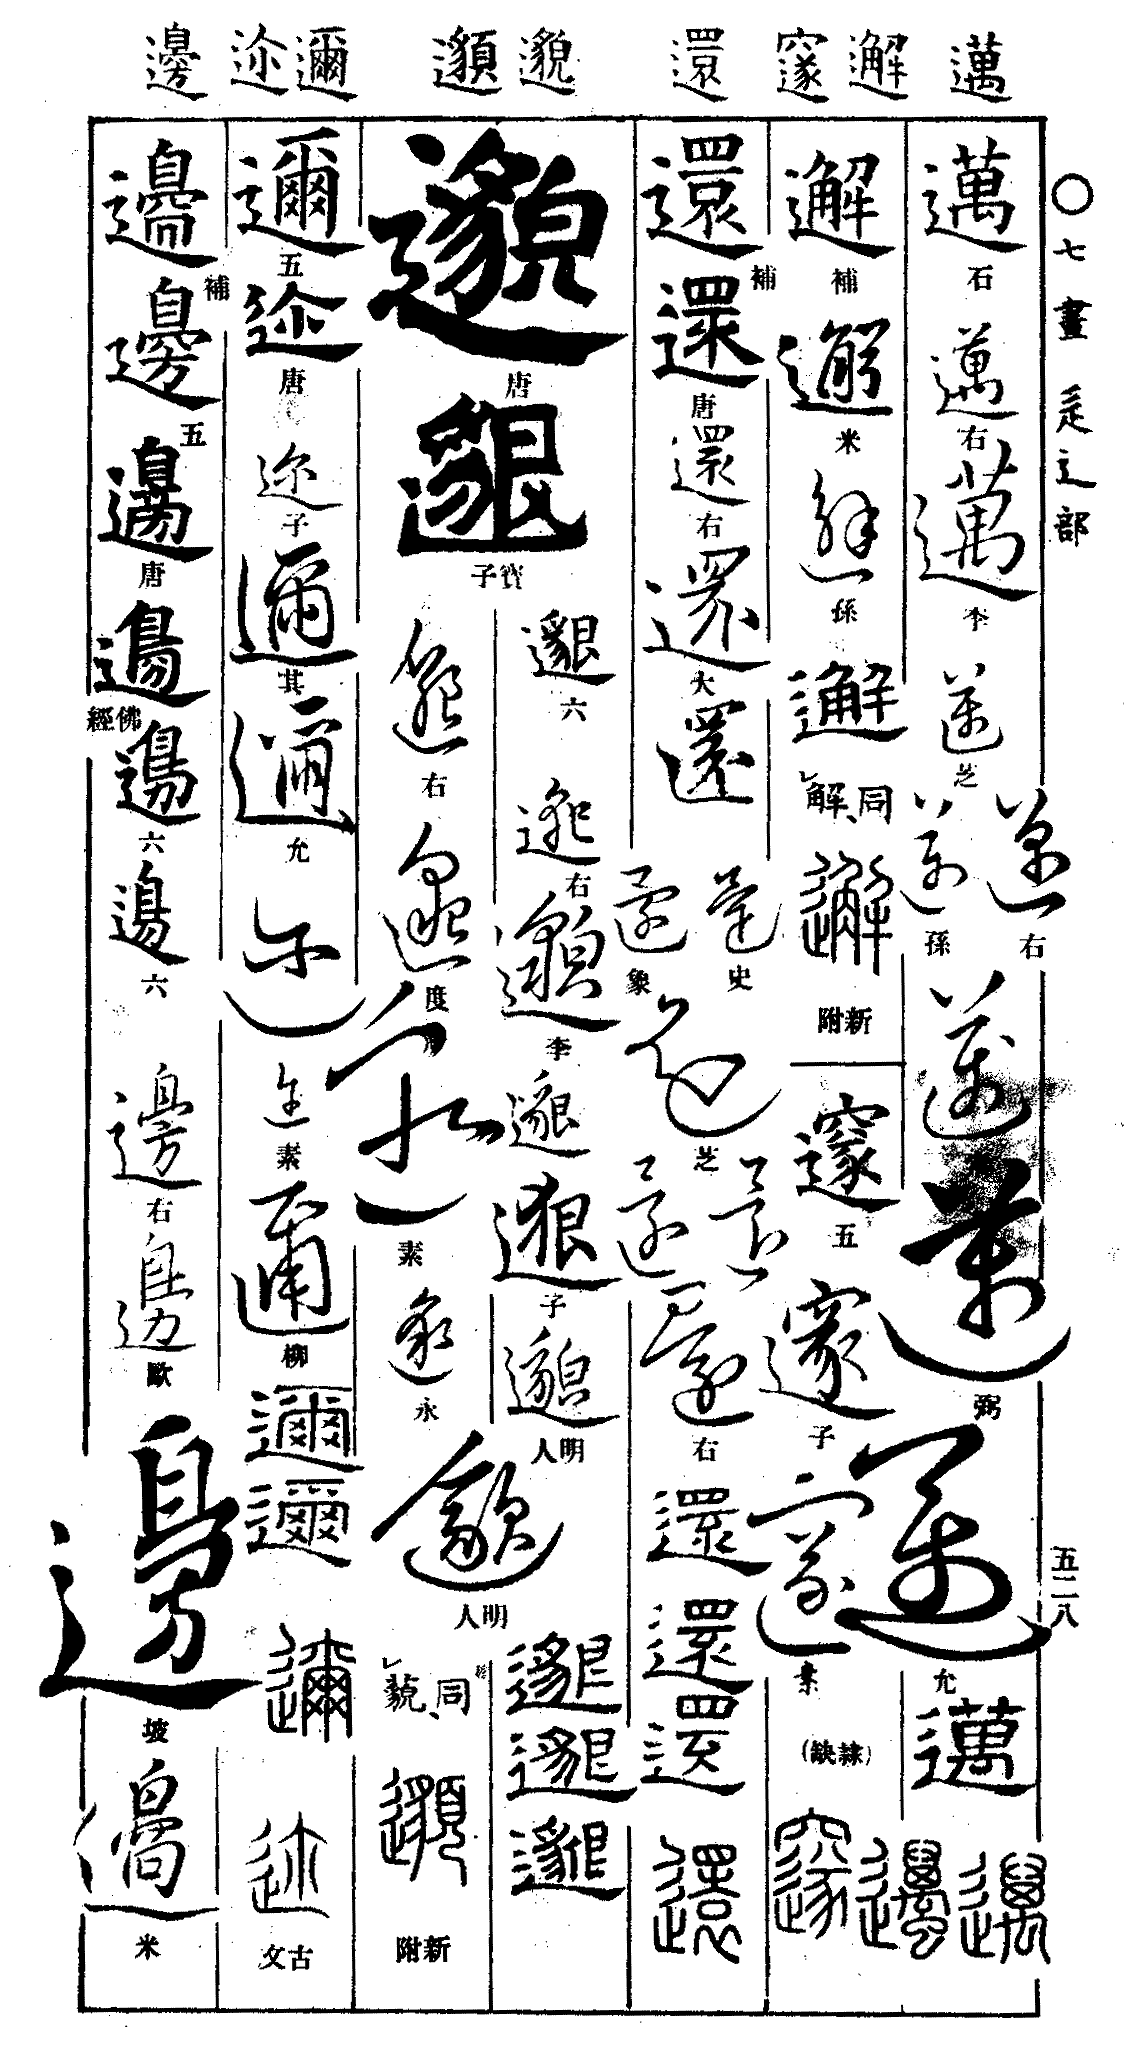 邁 邂 邃 還 邈 邇 迩 邊
〇七畫 辵辶部 五二八
邁 石 邁 右 邁 李 邁 芝 邁 右 邁 孫 邁 邁 弼 邁 允 邁 邁 邁
邂 補 邂 米 邂 孫 邂 同解、 邂 新附
邃 五 邃 子 邃 素 (隸缺) 邃
還 補 還 唐 還 右 還 大 還 還 史 還 象 還 芝 還 還 還 右 還 還 還 還
邈 唐 邈 寶子 邈 六 邈 右 邈 李 邈 邈 子 邈 明人 邈 邈 邈
邈 右 邈 度 邈 素 邈 永 邈 明人 同藐、 邈 新附
邇 五 迩 唐 迩 子 邇 其 邇 允 迩 迩 素 邇 柳 邇 邇 邇 迩 古文
邊 補 邊 五 邊 唐 邊 佛經 邊 六 邊 六 邊 右 邊 歐 邊 坡 邊 米